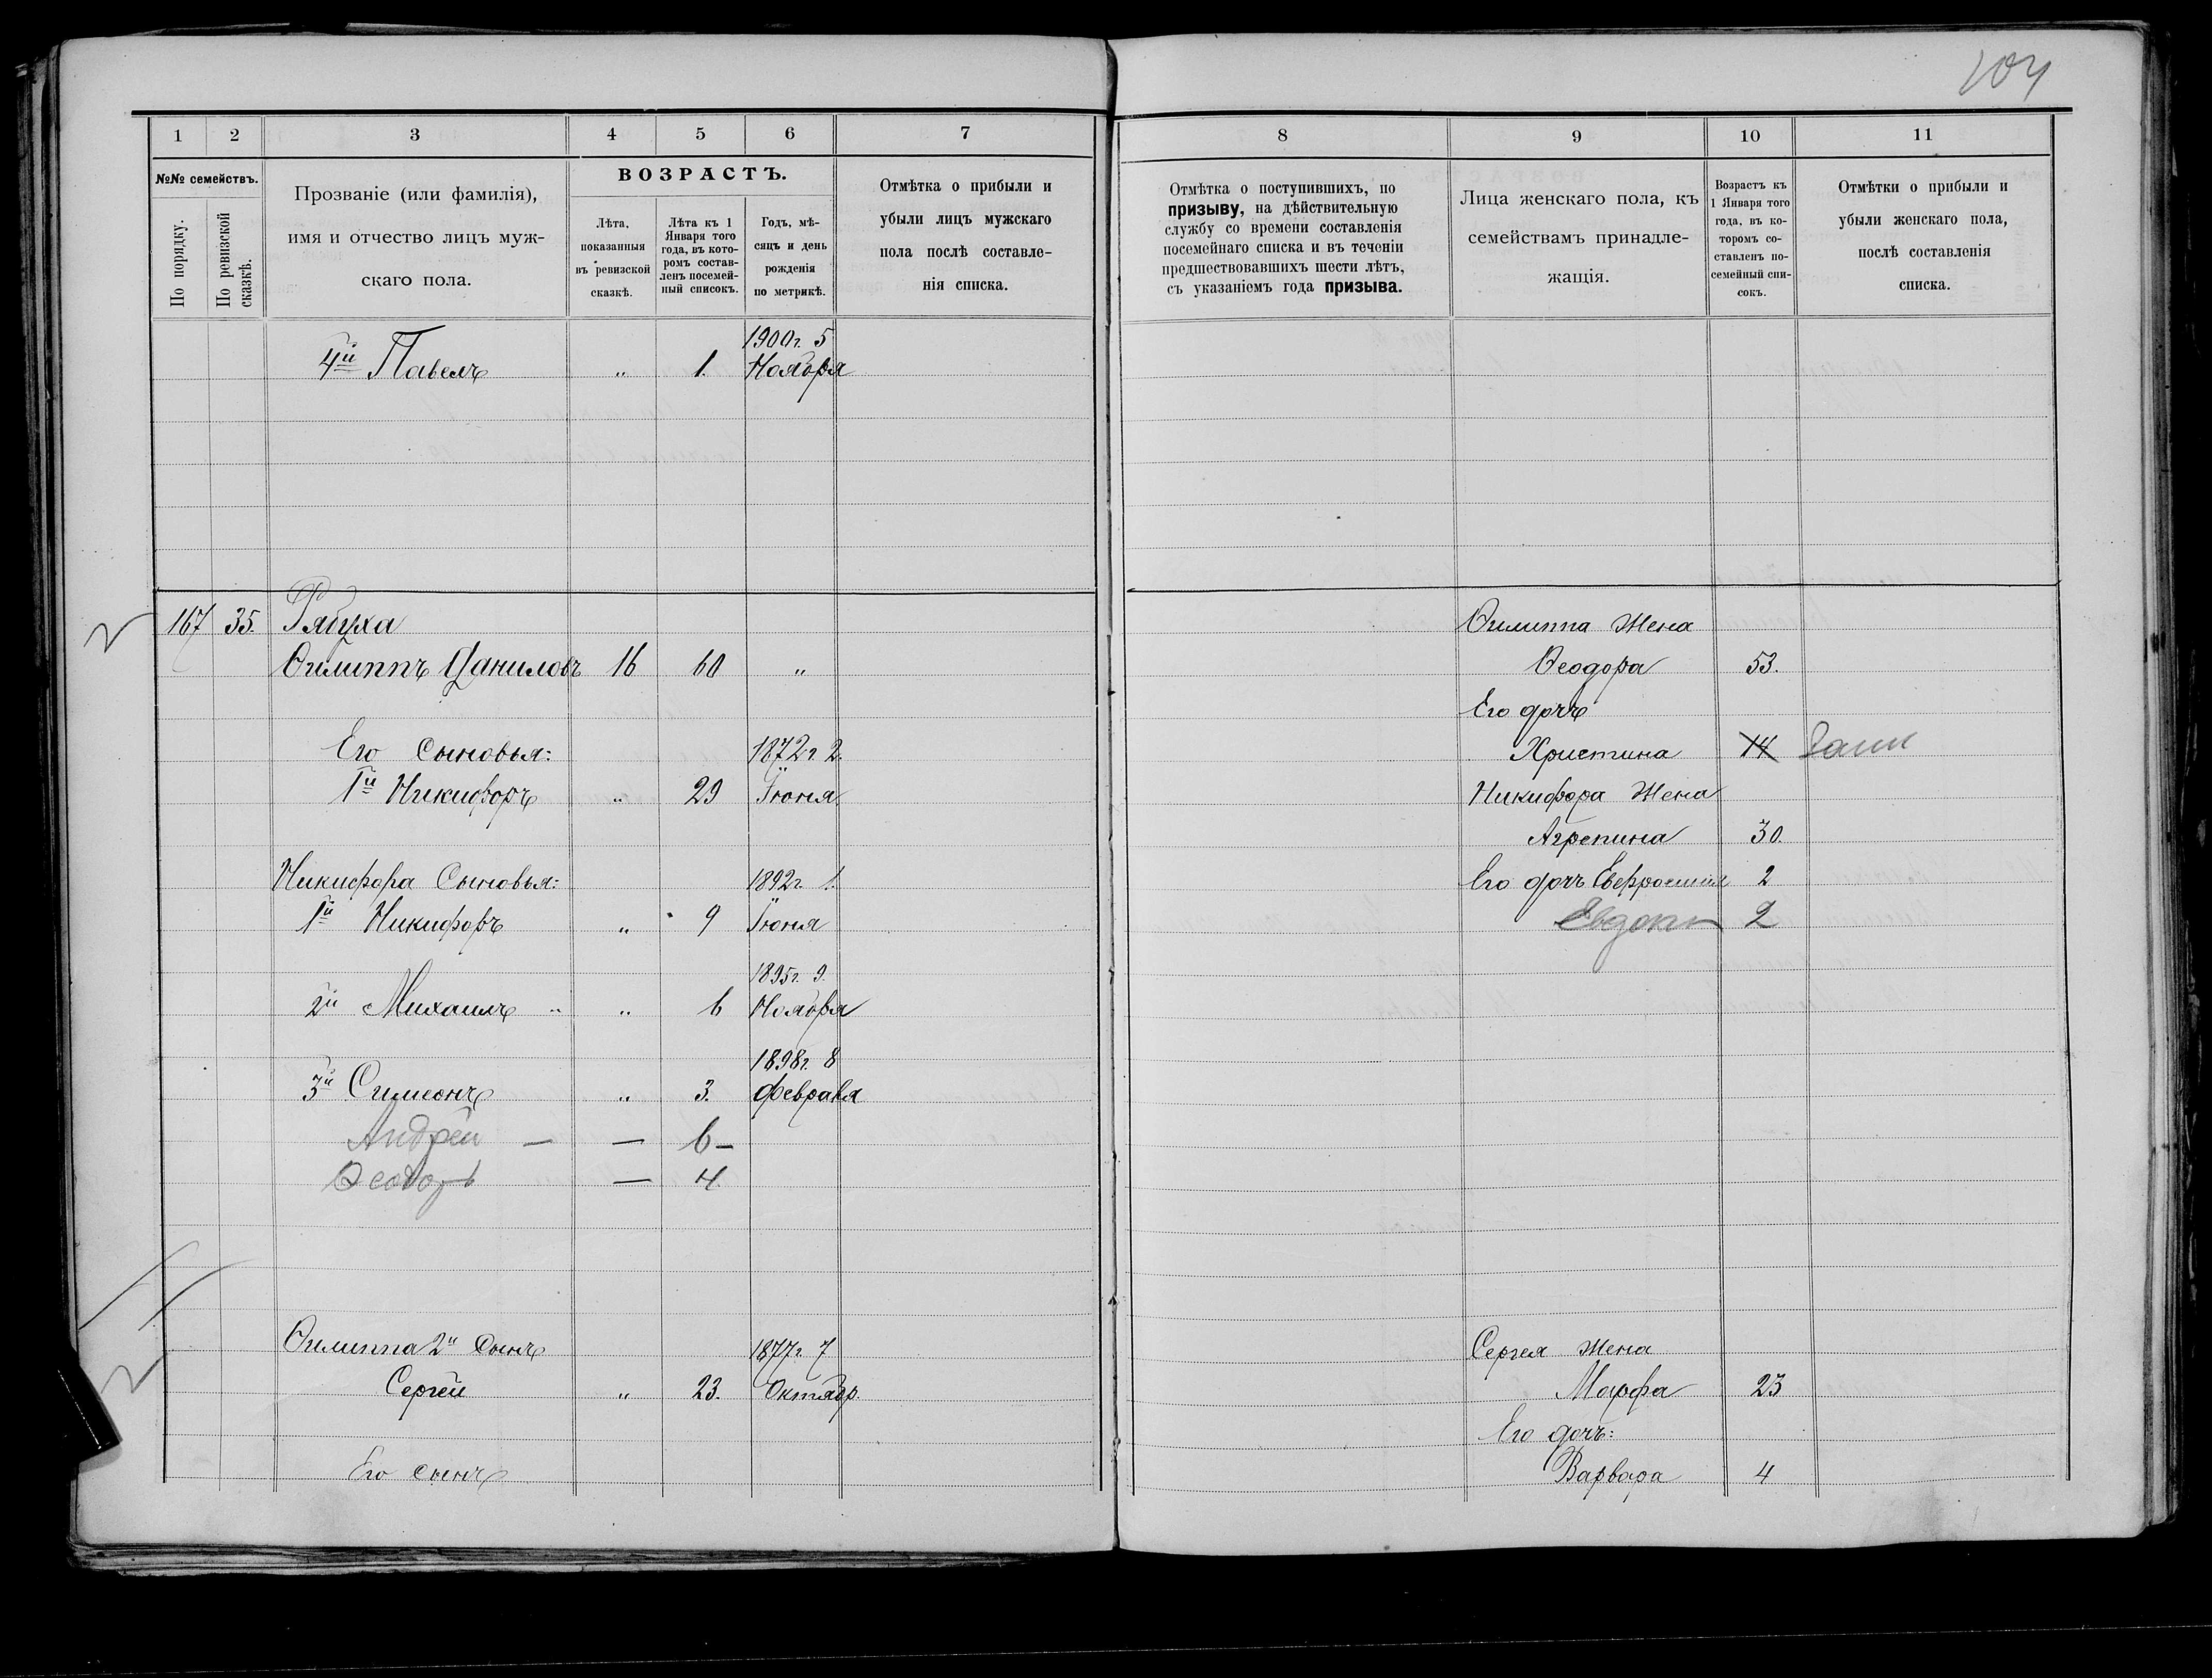 104
1 2 3 4 5 6 7
№№ семействъ.
По порядку.
По ревизской сказкѣ.
Прозваніе (или фамилія),
имя и отчество лицъ муж-
скаго пола.
ВОЗРАСТЪ.
Лѣта,
показанныя
въ ревизской
сказкѣ.
Лѣта къ 1
Января того
года, въ кото-
ромъ состав-
ленъ посемей-
ный списокъ.
Годъ, мѣ-
сяцъ и день
рожденія
по метрикѣ.
Отмѣтка о прибыли и
убыли лицъ мужскаго
пола послѣ составле-
нія списка.
1900г. 5
4й Павелъ " 1. Ноября
167 35. Рябуха
Ѳилиппъ Даниловъ 16 60 "
Его Сыновья: 1872г. 2.
1й Никифоръ " 29 Іюня
Никифора Сыновья: 1892г. 1.
1й Никифоръ " 9 Іюня
1895г. 9.
2й Михаилъ " " 6 Ноября
1898г. 8
3й Симеонъ " 3. Февраля
Андрей — — 6 —
Ѳеодоръ — 4
Ѳилиппа 2й Сынъ 1877г. 7
Сергей " 23. Октябр.
Его сынъ
8 9 10 11
Отмѣтка о поступившихъ, по
призыву, на дѣйствительную
службу со времени составленія
посемейнаго списка и въ теченіи
предшествовавшихъ шести лѣтъ,
съ указаніемъ года призыва.
Лица женскаго пола, къ
семействамъ принадле-
жащія.
Возрастъ къ
1 Января того
года, въ ко-
торомъ со-
ставленъ по-
семейный спи-
сокъ.
Отмѣтки о прибыли и
убыли женскаго пола,
послѣ составленія
списка.
Ѳилиппа Жена
Ѳеодора 53.
Его дочь
Христина 14
Никифора Жена
Агрепина 30.
Его дочь Евфросинія 2
Евдокия 2
Сергея жена
Марфа 23
Его дочь:
Варвара 4